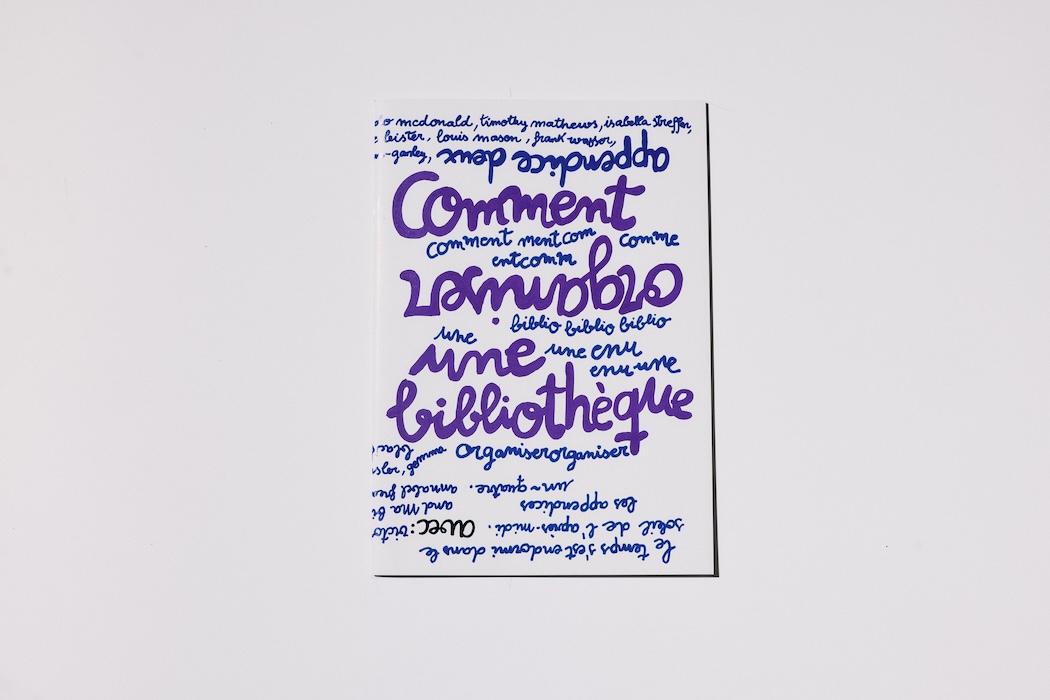 mcdonald, timothy mathews, isabella streffen,
leister, louis mason, frank wasser,
-garley, appendice deux
Comment
comment mentcom comme
entcomm
organiser
biblio biblio biblio
une
une une enu
enu-une
bibliothèque
organiserorganiser
gemma
un~quatre.
annabel
les appendices
and Ma
avec:
soleil de l'après-midi.
le temps s'est endormi dans le